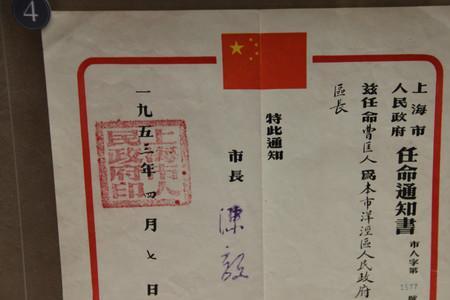 4
上海市
人民政府
任命通知書
市人字第1577
茲任命曹匡人爲本市洋涇區人民政府
區長
特此通知
市長 陳毅
一九五三年四月七日
上海市人
民政府印